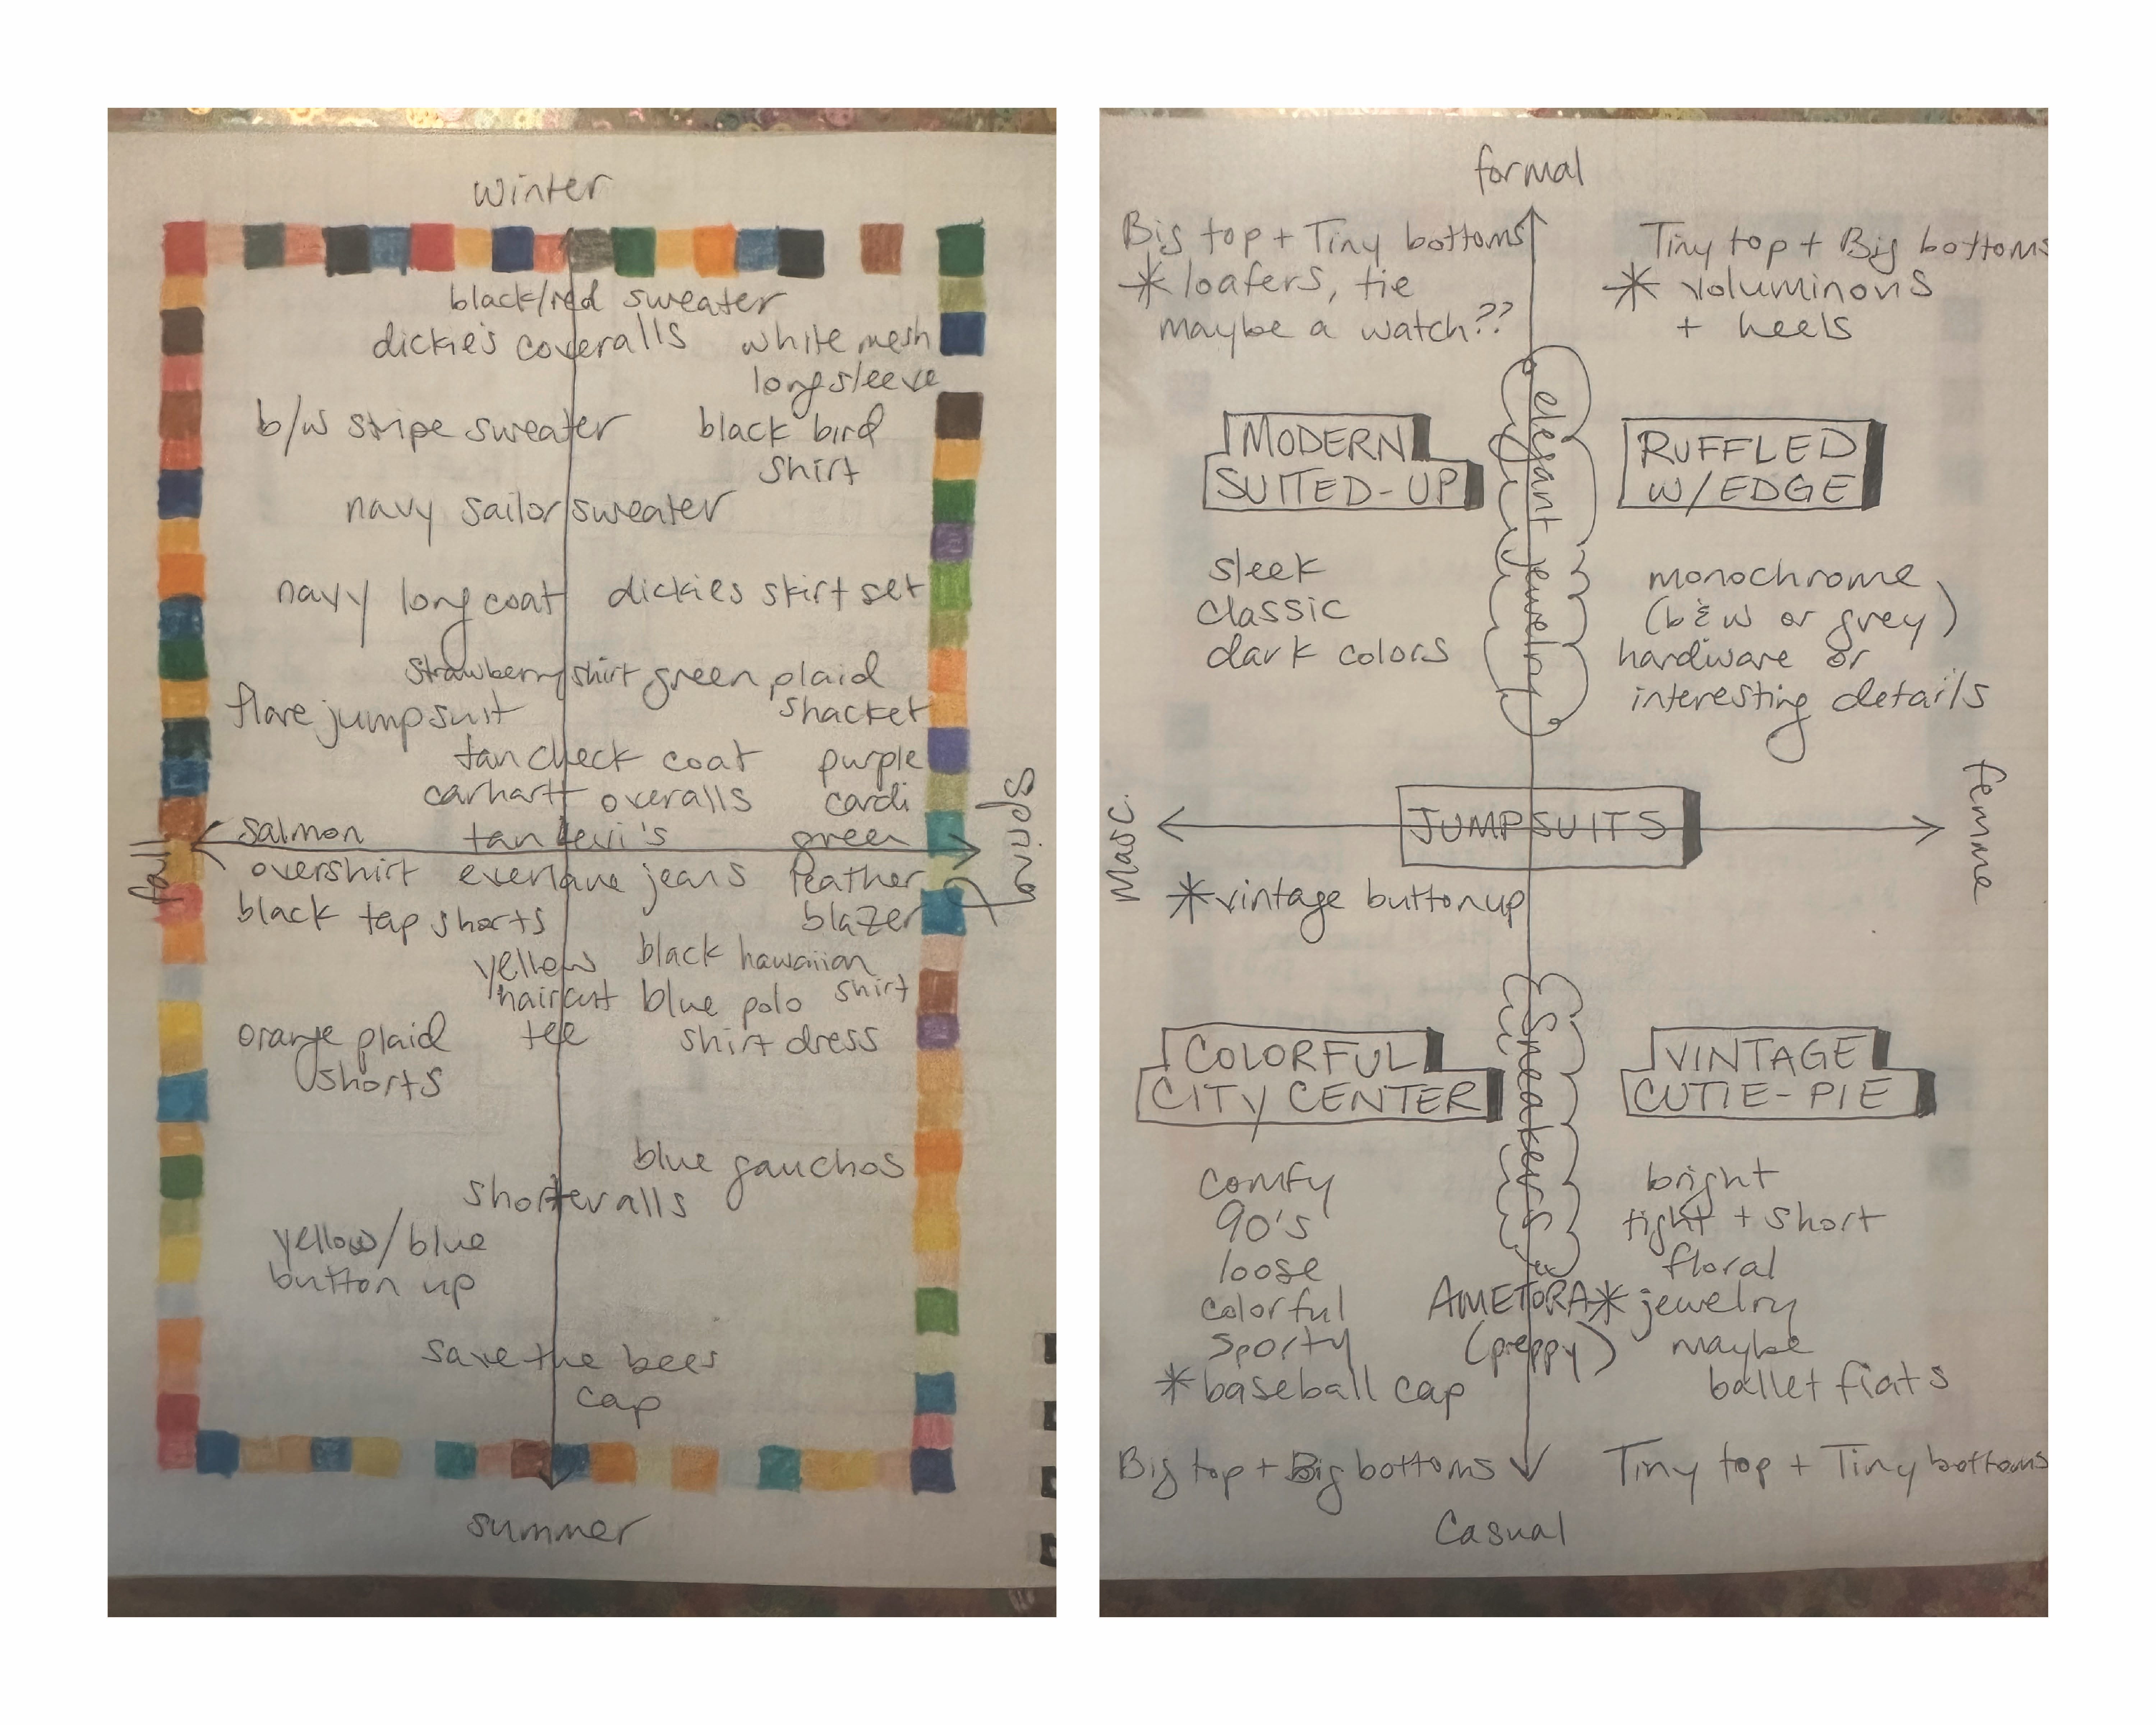 winter
black/red sweater
dickie's coveralls
white mesh
longsleeve
b/w stripe sweater
black bird
shirt
navy sailor sweater
navy long coat
dickies skirt set
strawberry shirt
green plaid
shacket
flare jumpsuit
tan check coat
purple
cardi
carhartt overalls
salmon
overshirt
tan levi's
green
leather
blazer
everlane jeans
fall
spring
black tap shorts
yellow
haircut
tee
black hawaiian
shirt
blue polo
shirt dress
orange plaid
shorts
blue gauchos
shorteralls
yellow/blue
button up
save the bees
cap
summer
formal
Big top + Tiny bottoms
* loafers, tie
maybe a watch??
Tiny top + Big bottoms
* voluminous
+ heels
elegant jewelry
MODERN
SUITED-UP
RUFFLED
W/EDGE
sleek
classic
dark colors
monochrome
(b&w or grey)
hardware or
interesting details
Masc.
JUMPSUITS
femme
* vintage buttonup
sneakers
COLORFUL
CITY CENTER
VINTAGE
CUTIE-PIE
comfy
90's
loose
colorful
sporty
* baseball cap
bright
tight + short
floral
AMETORA
(preppy)
* jewelry
maybe
ballet flats
Big top + Big bottoms
Tiny top + Tiny bottoms
Casual